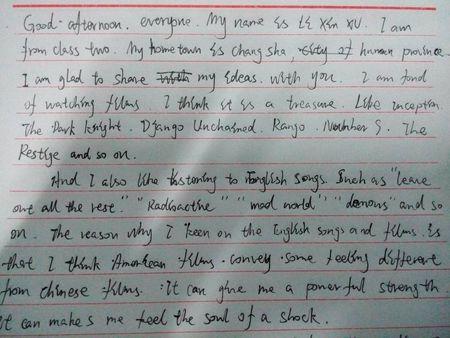 Good afternoon. everyone. My name is Li Xin Xu. I am
from class two. My hometown is changsha, city of hunan province.
I am glad to share with my ideas. with you. I am fond
of watching films. I think it is a treasure. Like inception.
The Dark knight. Django Unchained. Rango. Number 9. The
Restige and so on.
And I also like listening to English songs. Such as "leave
out all the rest." "Radioactive" "mad world" "demons" and so
on. The reason why I keen on the English songs and films. is
that I think American films. convey some feeling different
from chinese films. It can give me a powerful strength
it can makes me feel the soul of a shock.